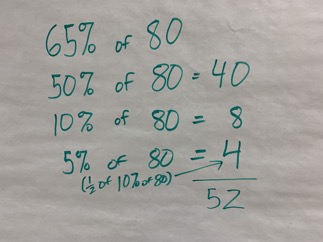 65% of 80
50% of 80 = 40
10% of 80 = 8
5% of 80 = 4
(½ of 10% of 80)
52